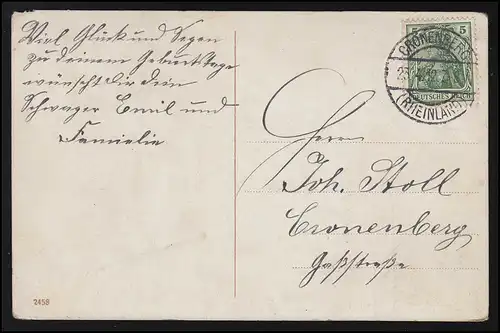 Viel Glück und Segen
zu deinem Geburtstage
wünscht dir dein
Schwager Emil und
Famielie
5
CRONENBERG
DEUTSCHES REICH
(RHEINLAND)
Herrn
Joh. Stoll
Cronenberg
Gaßstraße
2458